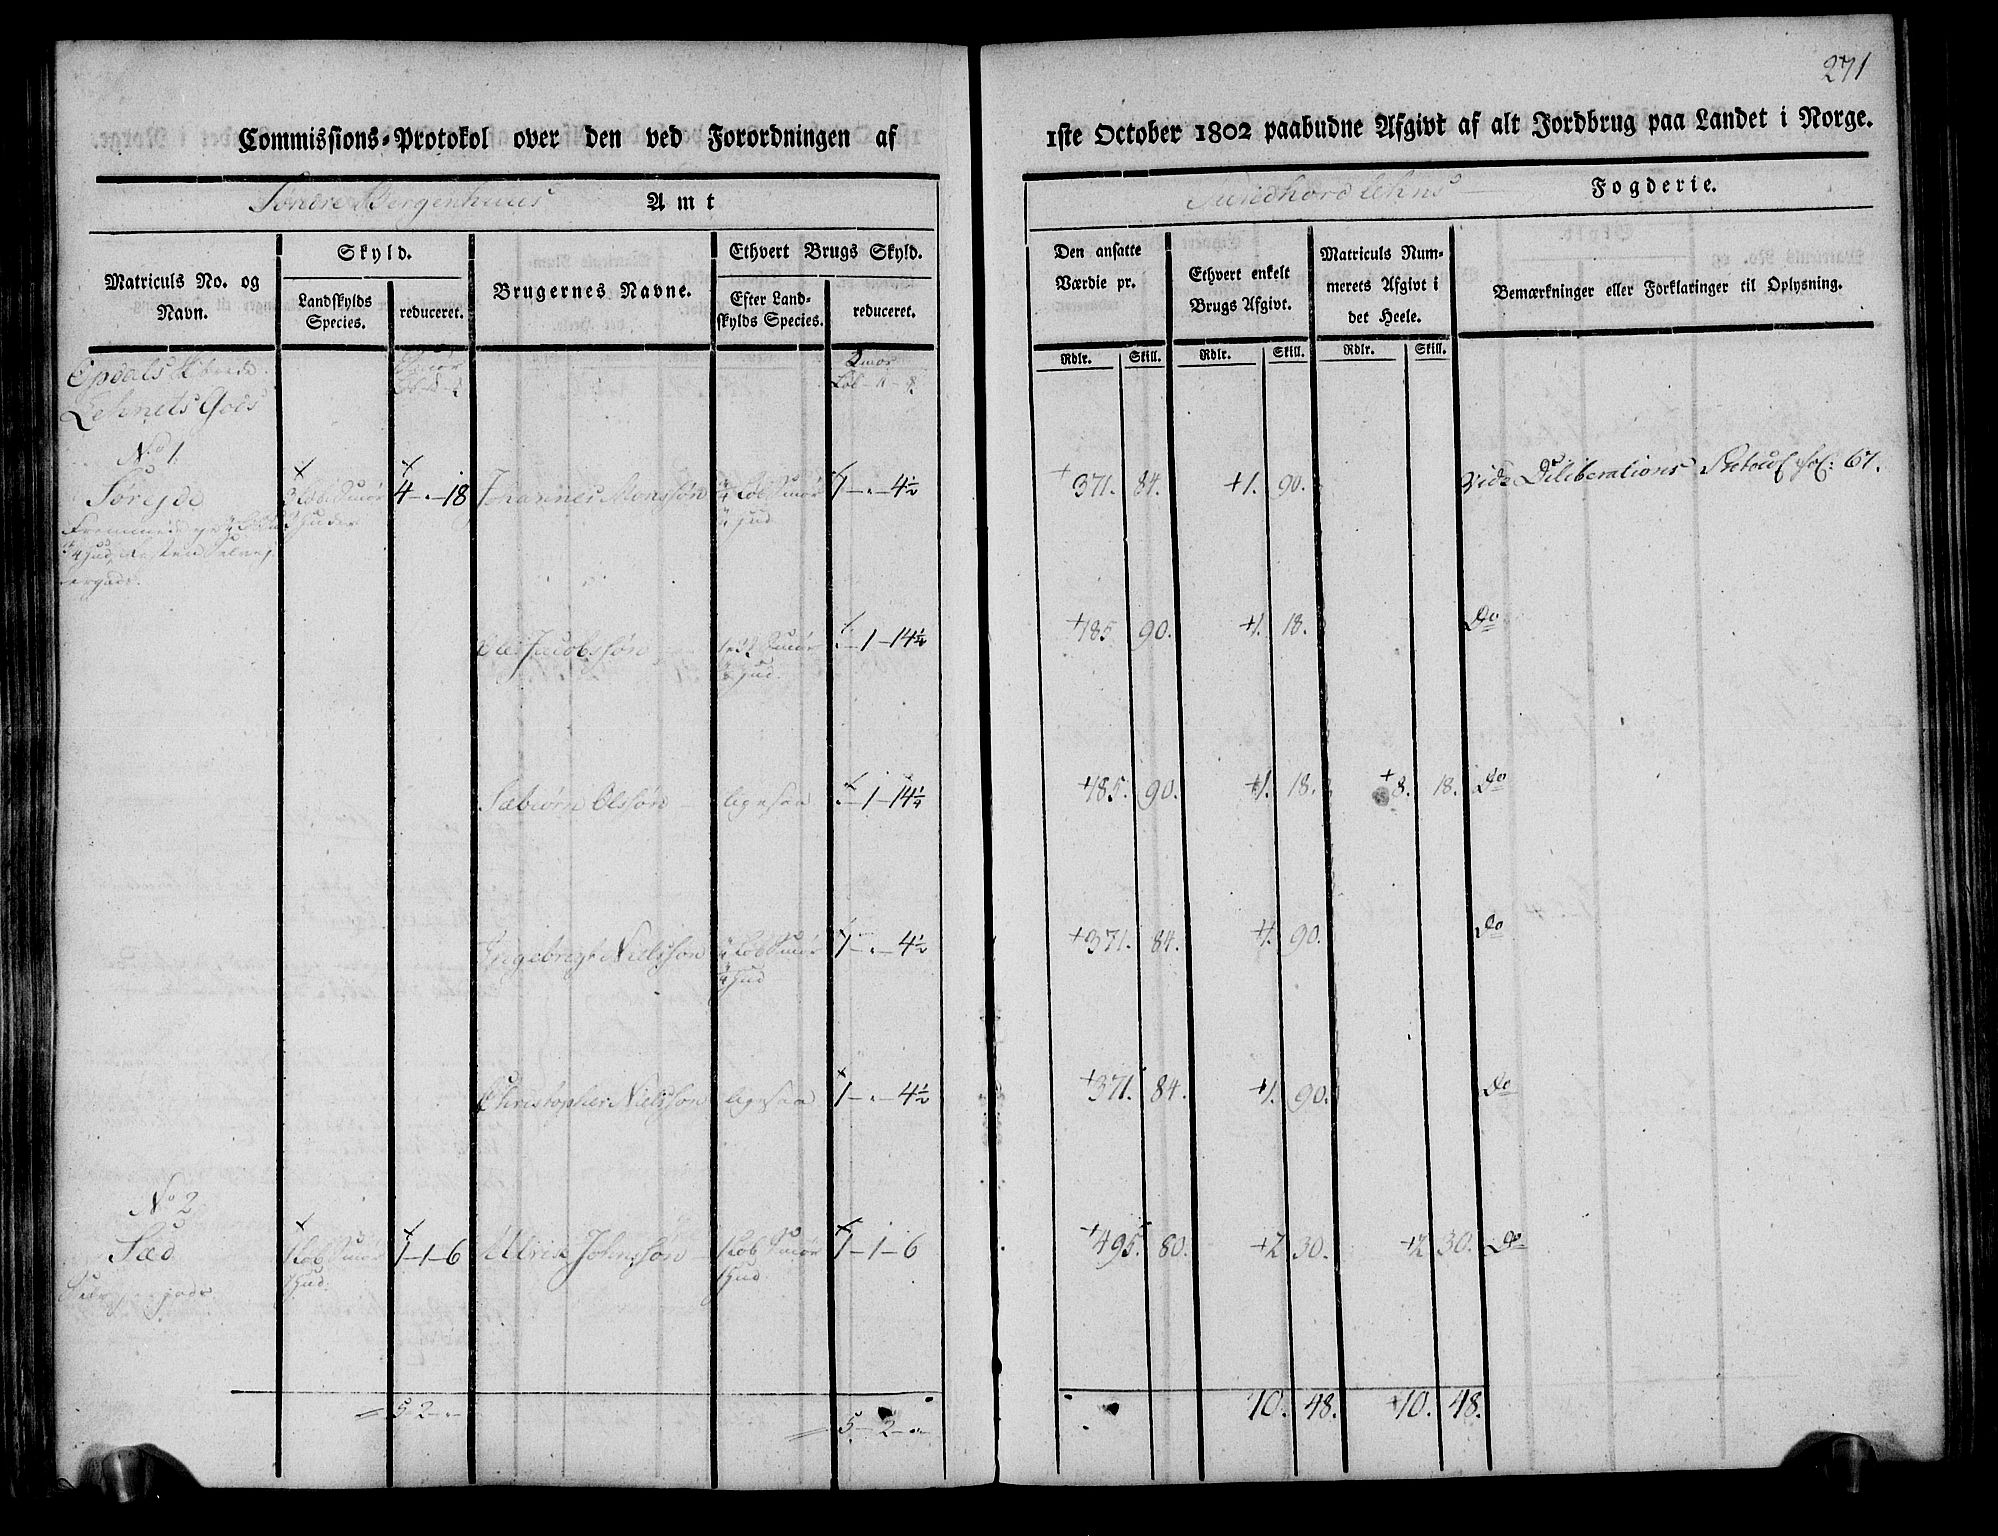 271
Commissions-Protokol over den ved Forordningen af
1ste October 1802 paabudne Afgivt af alt Jordbrug paa Landet i Norge.
Søndre Bergenhuus Amt
Sundhordlehns Fogderie.
Matriculs No. og Navn.
Skyld.
Landskylds Species.
reduceret.
Brugernes Navne.
Ethvert Brugs Skyld.
Efter Landskylds Species.
reduceret.
Den ansatte Værdie pr.
Ethvert enkelt Brugs Afgivt.
Matriculs Nummerets Afgivt i det Heele.
Bemærkninger eller Forklaringer til Oplysning.
Rdlr. Skill. Rdlr. Skill. Rdlr. Skill.
Opdals
Lehnets Gods
Smør
No 1
Søreide 4 - . - 18 Johannes Monssøn 1 - . - 4½ +371. 84. +1. 90. Vide Deliberations Protocol fol: 67.
Hud
Ole Jacobssøn . - 1 - 14¼ +185 90. +1. 18. Do
Hud
Sæbiørn Olssøn ligesaa . - 1 - 14¼ +185. 90. +1. 18. +8. 18. Do
Ingebrigt Nielssøn 1 - . - 4½ +371. 84. +1. 90. Do
Hud
Christopher Nielssøn ligesaa 1 - . - 4½ +371. 84. +1. 90. Do
No 2
Sæd 1 Løb Smør 1 - 1 - 6 Johnssøn 1 Løb Smør 1 - 1 - 6 +495. 80. +2 30. +2 30. Do
1 Hud 1 Hud
5 - 2 - . 5 - 2 - . 10. 48. 10. 48.